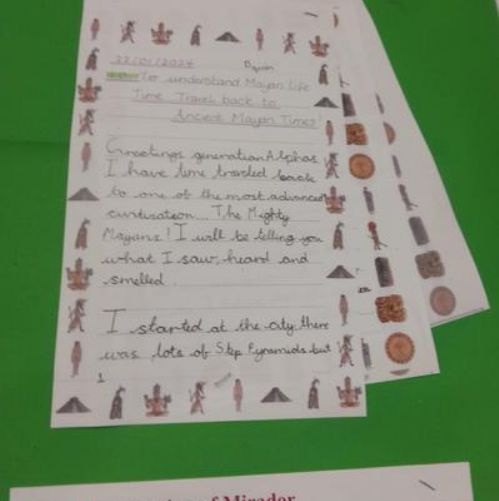 22/01/2024
To understand Mayan life
Time Travel back to
Ancient Mayan Times!
Greetings generation Alphas
I have time traveled back
to one of the most advanced
civilisation... The Mighty
Mayans! I will be telling you
what I saw, heard and
smelled.
I started at the city, there
was lots of Step Pyramids but
1
of Mirador